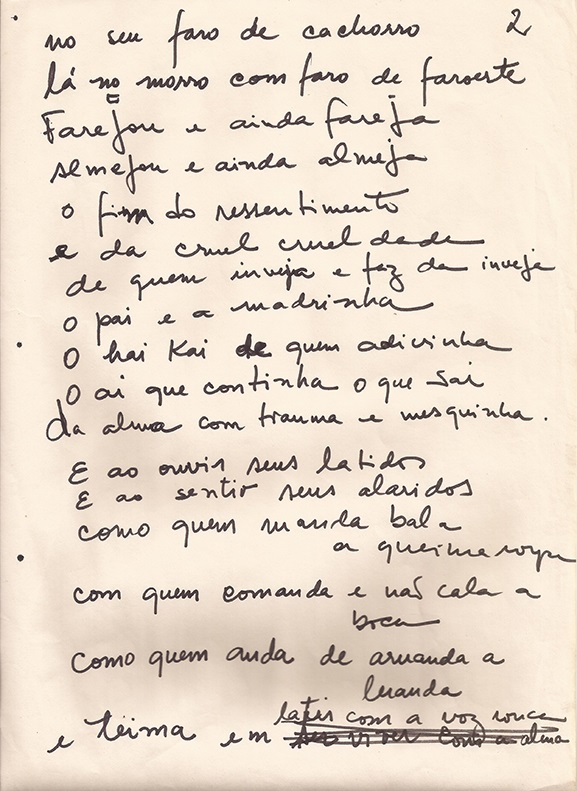 2
no seu faro de cachorro
lá no morro com faro de faroeste
Farejou e ainda fareja
almejou e ainda almeja
o fim do ressentimento
e da cruel crueldade
de quem inveja e faz da inveja
o pai e a madrinha
O hai Kai de quem adivinha
O ai que continha o que sai
da alma com trauma e mesquinha.
E ao ouvir seus latidos
E ao sentir seus alaridos
como quem manda bala
a queima roupa
com quem comanda e não cala a
boca
como quem anda de aruanda a
luanda
latir com a voz rouca
e teima em viver com a alma